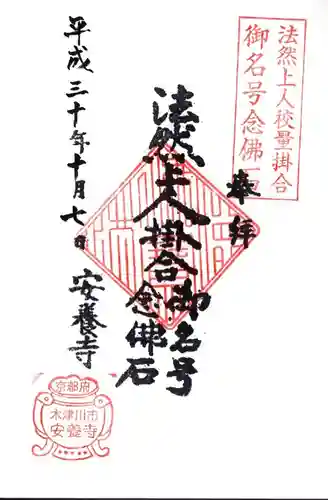 法然上人校量掛合
御名号念佛石
奉拝
法然上人掛合御名号
念佛石
平成三十年十月七日
安養寺
京都府
木津川市
安養寺